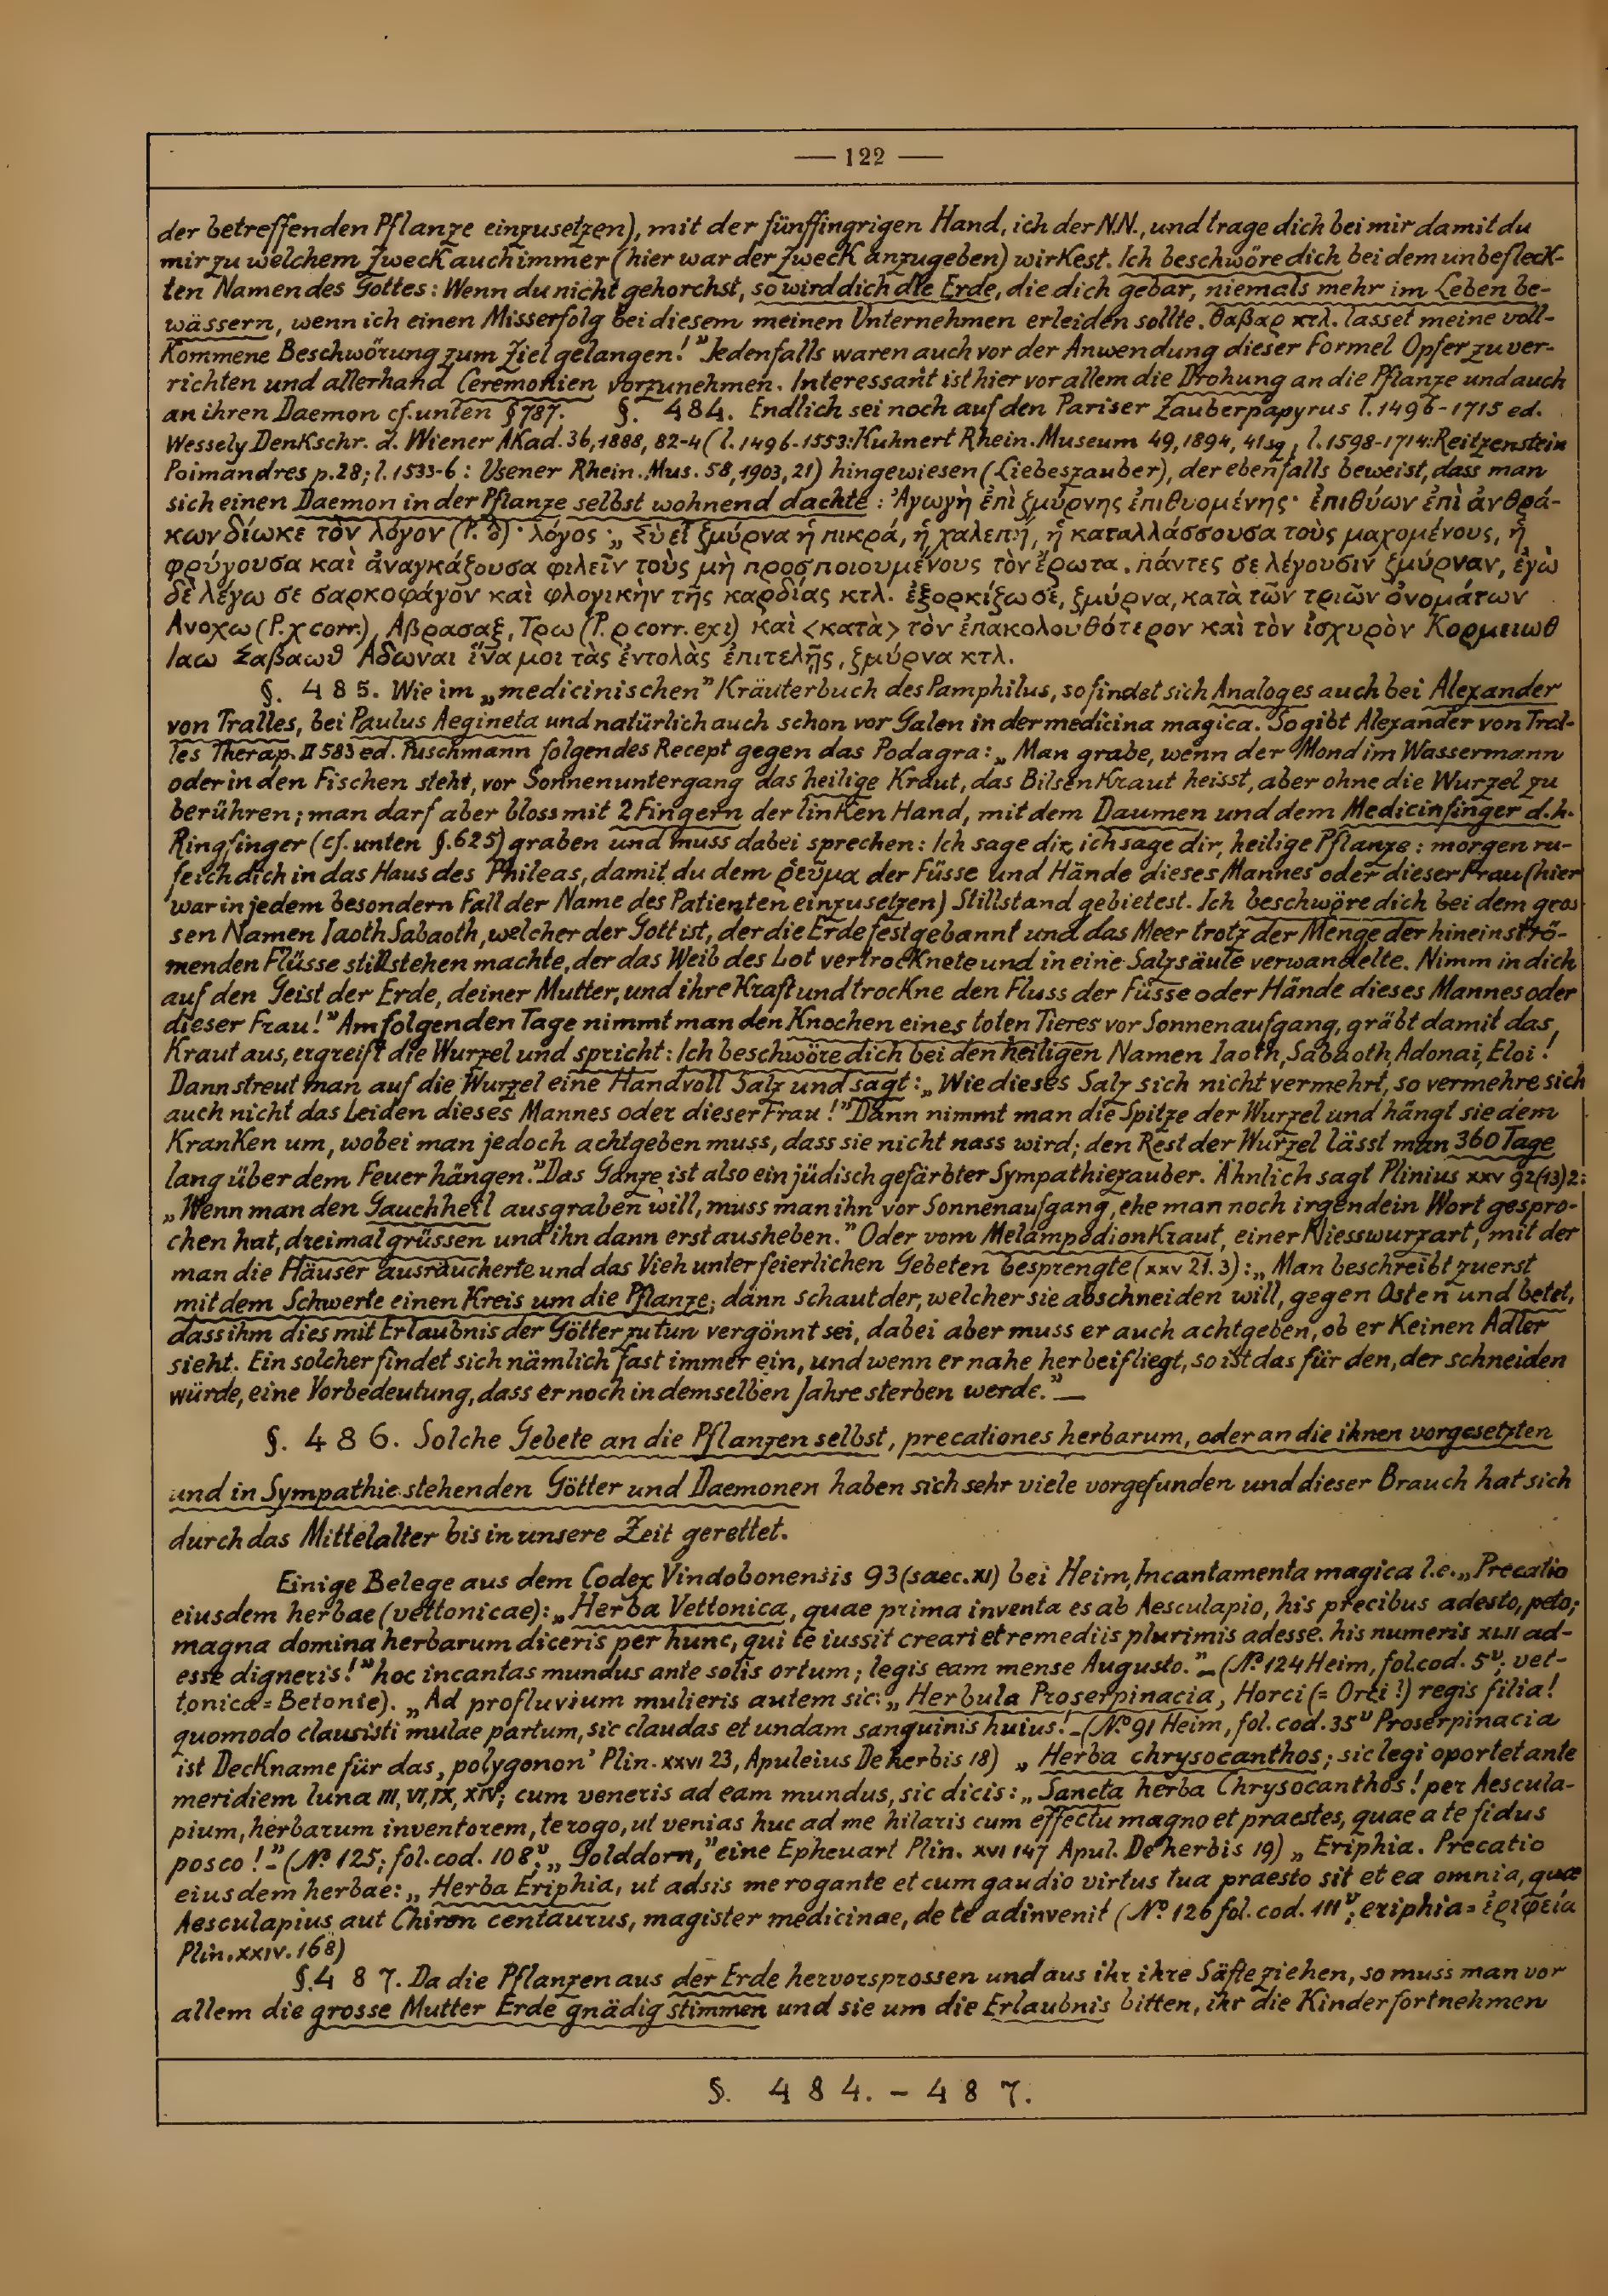 — 122 —
der betreffenden Pflanze einzusetzen), mit der fünffingrigen Hand, ich der N.N., und trage dich bei mir damit du
mir zu welchem Zweck auch immer (hier war der Zweck anzugeben) wirkest. Ich beschwöre dich bei dem unbefleck-
ten Namen des Gottes: Wenn du nicht gehorchst, so wird dich die Erde, die dich gebar, niemals mehr im Leben be-
wässern, wenn ich einen Misserfolg bei diesem meinen Unternehmen erleiden sollte. θαβαρ κτλ. lasset meine voll-
kommene Beschwörung zum Ziel gelangen!" Jedenfalls waren auch vor der Anwendung dieser Formel Opfer zu ver-
richten und allerhand Ceremonien vorzunehmen. Interessant ist hier vor allem die Drohung an die Pflanze und auch
an ihren Daemon cf. unten § 787. §. 484. Endlich sei noch auf den Pariser Zauberpapyrus l. 1496-1715 ed.
Wessely Denkschr. d. Wiener Akad. 36, 1888, 82-4 (l. 1496-1553: Kuhnert Rhein. Museum 49, 1894, 41sq; l. 1598-1714: Reitzenstein
Poimandres p. 28; l. 1533-6: Usener Rhein. Mus. 58, 1903, 21) hingewiesen (Liebeszauber), der ebenfalls beweist, dass man
sich einen Daemon in der Pflanze selbst wohnend dachte: Ἀγωγὴ ἐπὶ ζμύρνης ἐπιθυομένης· ἐπιθύων ἐπὶ ἀνθρά-
κων δίωκε τὸν λόγον (P. δ)· λόγος· „Σὺ εἶ ζμύρνα ἡ πικρά, ἡ χαλεπή, ἡ καταλλάσσουσα τοὺς μαχομένους, ἡ
φρύγουσα καὶ ἀναγκάζουσα φιλεῖν τοὺς μὴ προσποιουμένους τὸν ἔρωτα. πάντες σε λέγουσιν ζμύρναν, ἐγὼ
δὲ λέγω σε σαρκοφάγον καὶ φλογικὴν τῆς καρδίας κτλ. ἐξορκίζω σέ, ζμύρνα, κατὰ τῶν τριῶν ὀνομάτων
Ανοχω (P. χ corr.), Αβρασαξ, Τρω (P. ρ corr. ex ι) καὶ <κατὰ> τὸν ἐπακολουθότερον καὶ τὸν ἰσχυρὸν Κορμειωθ
Ιαω Σαβαωθ Αδωναι ἵνα μοι τὰς ἐντολὰς ἐπιτελῇς, ζμύρνα κτλ.
§. 485. Wie im „medicinischen" Kräuterbuch des Pamphilus, so findet sich Analoges auch bei Alexander
von Tralles, bei Paulus Aegineta und natürlich auch schon vor Galen in der medicina magica. So gibt Alexander von Tral-
les Therap. II 583 ed. Puschmann folgendes Recept gegen das Podagra: „Man grabe, wenn der Mond im Wassermann
oder in den Fischen steht, vor Sonnenuntergang das heilige Kraut, das Bilsenkraut heisst, aber ohne die Wurzel zu
berühren; man darf aber bloss mit 2 Fingern der linken Hand, mit dem Daumen und dem Medicinfinger d.h.
Ringfinger (cf. unten §. 625) graben und muss dabei sprechen: Ich sage dir, ich sage dir, heilige Pflanze: morgen ru-
fe ich dich in das Haus des Phileas, damit du dem ῥεῦμα der Füsse und Hände dieses Mannes oder dieser Frau (hier
war in jedem besondern Fall der Name des Patienten einzusetzen) Stillstand gebietest. Ich beschwöre dich bei dem gros-
sen Namen Iaoth Sabaoth, welcher der Gott ist, der die Erde festgebannt und das Meer trotz der Menge der hineinströ-
menden Flüsse stillstehen machte, der das Weib des Lot vertrocknete und in eine Salzsäule verwandelte. Nimm in dich
auf den Geist der Erde, deiner Mutter, und ihre Kraft und trockne den Fluss der Füsse oder Hände dieses Mannes oder
dieser Frau!" Am folgenden Tage nimmt man den Knochen eines toten Tieres vor Sonnenaufgang, gräbt damit das
Kraut aus, ergreift die Wurzel und spricht: Ich beschwöre dich bei den heiligen Namen Iaoth, Sabaoth, Adonai, Eloi!
Dann streut man auf die Wurzel eine Handvoll Salz und sagt: „Wie dieses Salz sich nicht vermehrt, so vermehre sich
auch nicht das Leiden dieses Mannes oder dieser Frau!" Dann nimmt man die Spitze der Wurzel und hängt sie dem
Kranken um, wobei man jedoch achtgeben muss, dass sie nicht nass wird; den Rest der Wurzel lässt man 360 Tage
lang über dem Feuer hängen." Das Ganze ist also ein jüdisch gefärbter Sympathiezauber. Ähnlich sagt Plinius XXV 92(13)2:
„Wenn man den Gauchheil ausgraben will, muss man ihn vor Sonnenaufgang, ehe man noch irgendein Wort gespro-
chen hat, dreimal grüssen und ihn dann erst ausheben." Oder vom Melampodionkraut, einer Niesswurzart, mit der
man die Häuser ausräucherte und das Vieh unter feierlichen Gebeten besprengte (XXV 21.3): „Man beschreibt zuerst
mit dem Schwerte einen Kreis um die Pflanze; dann schaut der, welcher sie abschneiden will, gegen Osten und betet,
dass ihm dies mit Erlaubnis der Götter zu tun vergönnt sei, dabei aber muss er auch achtgeben, ob er keinen Adler
sieht. Ein solcher findet sich nämlich fast immer ein, und wenn er nahe herbeifliegt, so ist das für den, der schneiden
würde, eine Vorbedeutung, dass er noch in demselben Jahre sterben werde." —
§. 486. Solche Gebete an die Pflanzen selbst, precationes herbarum, oder an die ihnen vorgesetzten
und in Sympathie stehenden Götter und Daemonen haben sich sehr viele vorgefunden und dieser Brauch hat sich
durch das Mittelalter bis in unsere Zeit gerettet.
Einige Belege aus dem Codex Vindobonensis 93 (saec. XI) bei Heim, Incantamenta magica l.e. „Precatio
eiusdem herbae (vettonicae): „Herba Vettonica, quae prima inventa es ab Aesculapio, his precibus adesto, peto;
magna domina herbarum diceris per hunc, qui te iussit creari et remediis plurimis adesse. his numeris XLII ad-
esse digneris!" hoc incantas mundus ante solis ortum; legis eam mense Augusto." — (No 124 Heim, fol. cod. 5v; vet-
tonica = Betonie). „Ad profluvium mulieris autem sic: „Herbula Proserpinacia, Horci (= Orci!) regis filia!
quomodo clausisti mulae partum, sic claudas et undam sanguinis huius! — (No 91 Heim, fol. cod. 35v Proserpinacia
ist Deckname für das ‚polygonon' Plin. XXVI 23, Apuleius De herbis 18) „Herba chrysocanthos; sic legi oportet ante
meridiem luna III, VI, IX, XIV; cum veneris ad eam mundus, sic dicis: „Sancta herba Chrysocanthos! per Aescula-
pium, herbarum inventorem, te rogo, ut venias huc ad me hilaris cum effectu magno et praestes, quae a te fidus
posco!" — (No 125; fol. cod. 108v, „Golddorn," eine Epheuart Plin. XVI 147 Apul. De herbis 19) „Eriphia. Precatio
eiusdem herbae: „Herba Eriphia, ut adsis me rogante et cum gaudio virtus tua praesto sit et ea omnia, quae
Aesculapius aut Chiron centaurus, magister medicinae, de te adinvenit (No 126 fol. cod. 111v; eriphia = ἐριφεία
Plin. XXIV. 168)
§. 487. Da die Pflanzen aus der Erde hervorsprossen und aus ihr ihre Säfte ziehen, so muss man vor
allem die grosse Mutter Erde gnädig stimmen und sie um die Erlaubnis bitten, ihr die Kinder fortnehmen
§. 484. - 487.